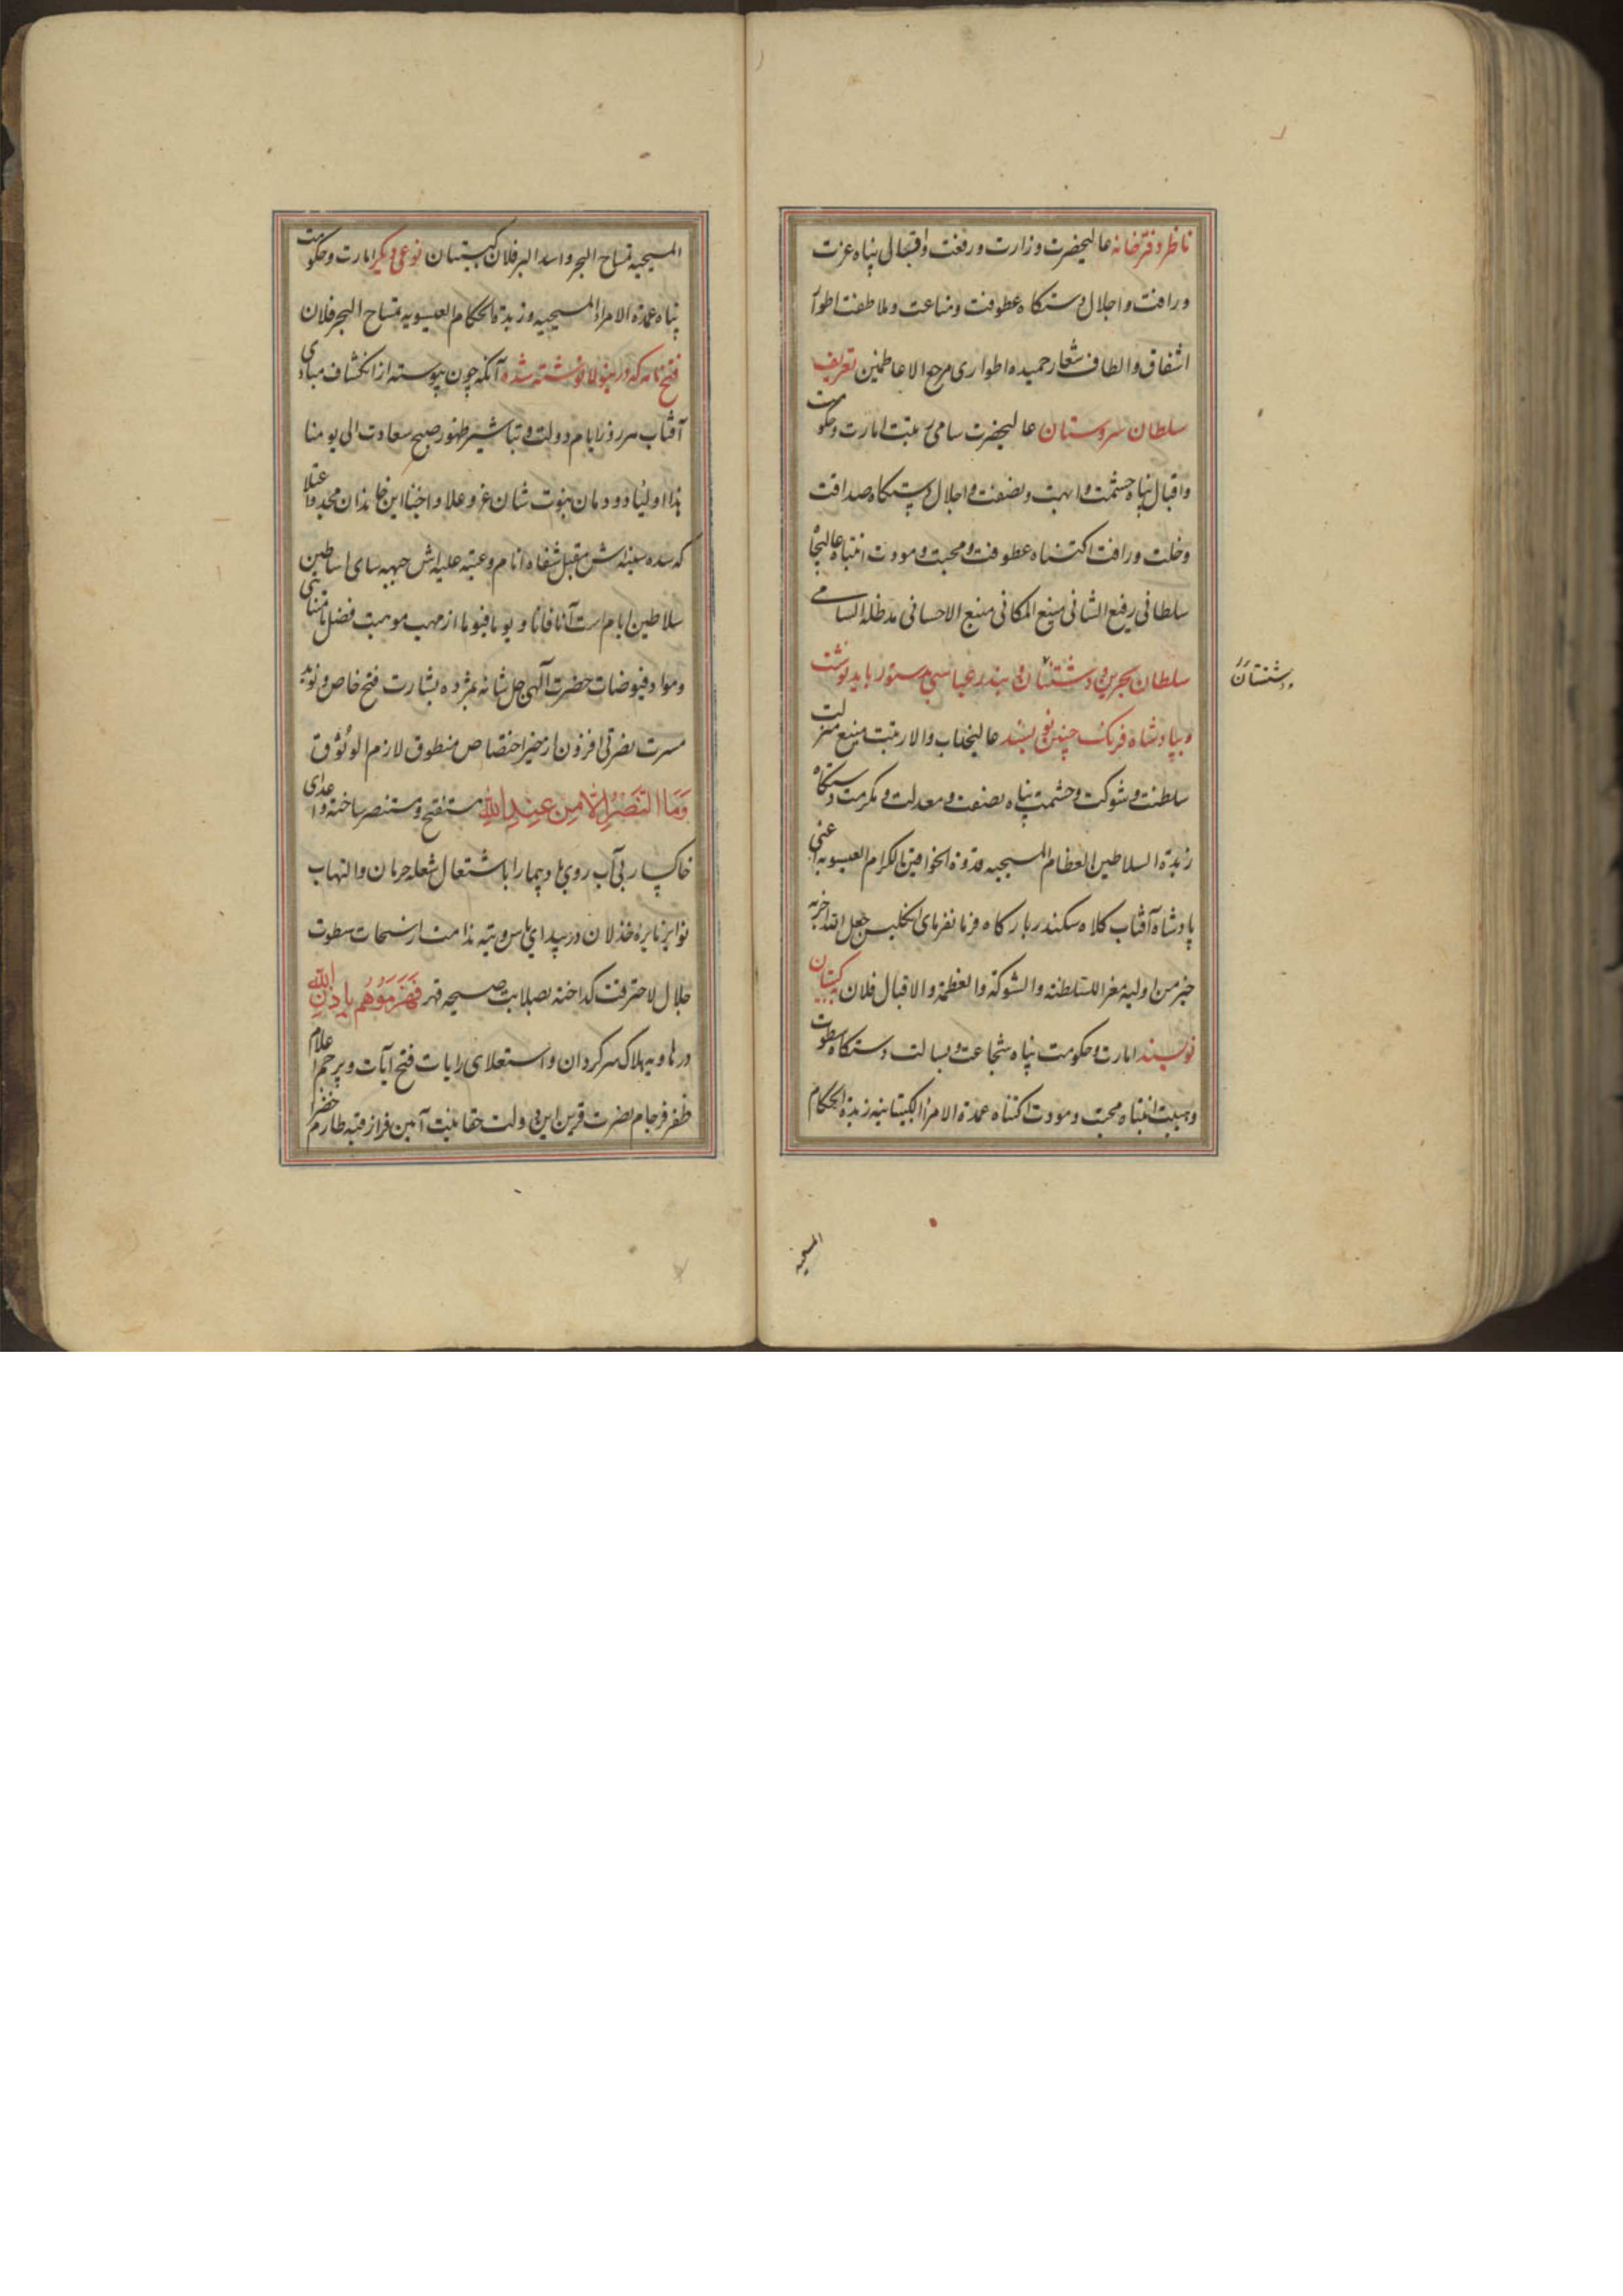 ناظر دفترخانه عالیحضرت وزارت و رفعت و اقبالی پناه عزت
و رافت و اجلال دستکاه عطوفت و مناعت و ملاطفت اطوار
اشفاق و الطاف شعار حمیده اطواری مرجع الاعاظمین تعریف
سلطان سروستان عالیحضرت سامی رتبت امارت و حکومت
و اقبال پناه حشمت و ابهت و نصفت و اجلال دستکاه صداقت
و خلت و رافت اکتناه عطوفت و محبت و مودت انتباه عالیجاه
سلطانی رفیع الشانی منیع المکانی منبع الاحسانی مدظله السامی
سلطان بحرین و دشتستان و بندر عباسی بدستور باید نوشت
دشتستان
و بپادشاه فرنک چنین نویسند عالیجناب والا رتبت منیع منزلت
سلطنت و شوکت و حشمت پناه نصفت و معدلت و مکرمت دستکاه
زبدة السلاطین العظام المسیحیه قدوة الخواقین الکرام العیسویه اعنی
پادشاه آفتاب کلاه سکندر بارکاه فرمانفرمای انکلیس جعل الله اخریه
خیر من اولیه مغرا للسلطنه والشوکة والعظمة والاقبال فلان کپیتان
نویسند امارت و حکومت پناه شجاعت و بسالت دستکاه سطوت
و هیبت انتباه محبت و مودت اکتناه عمدة الامراء الکپیتانیه زبدة الحکام
المسیحیه
المسیحیه تمساح البحر و اسد البر فلان کپیتان نوعی دیکر امارت و حکومت
پناه عمدة الامراء المسیحیه و زبدة الحکام العیسویه تمساح البحر فلان
فتح نامه که در نوشته شده آنکه چون پیوسته از انکشاف مبادی
آفتاب هر روز از ایام دولت و تباشیر ظهور صبح سعادت الی یومنا
هذا اولیاء دودمان نبوت شان عز و علا و احباء این خاندان مجد و اعتلا
که سده سنیه اش مقبل شفاه انام و عتبه علیه اش جبهه سای اساطین
سلاطین ایام است آنا فانا و یوما فیوما از مهب موهبت فضل نامتناهی
و مواد فیوضات حضرت آلهی جل شانه بمژده بشارت فتح خاص و نوید
مسرت نصرتی افزون از حیز اختصاص منطوق لازم الوثوق
وَمَا النَّصْرُ إِلَّا مِنْ عِنْدِ اللَّهِ مستفتح و مستنصر ساخته و اعدای
خاکسار بی آب روی باد پیما را باشتعال شعله حرمان و التهاب
نوایر نایره خذلان در بیدای یاس و تیه ندامت از سطوت
جلال لاحترقت کداخته بصلابت صیحه قهر فَهَزَمُوهُم بِإِذْنِ اللَّهِ
در هاویه هلاک سرکردان و استعلای رایات فتح آیات و پرچم اعلام
ظفر فرجام نصرت قرین این دولت حقانیت آیین فراز قبه طارم خضرا